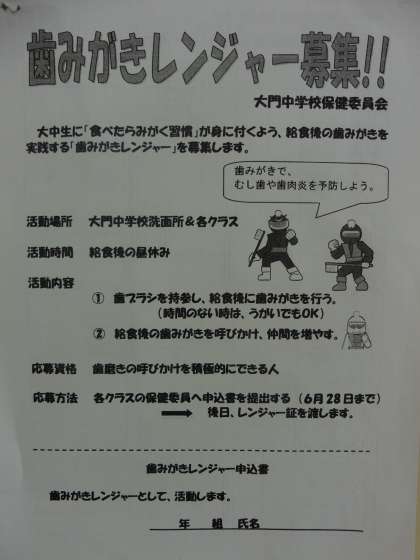 歯みがきレンジャー募集!!
大門中学校保健委員会
大中生に「食べたらみがく習慣」が身に付くよう、給食後の歯みがきを
実践する「歯みがきレンジャー」を募集します。
歯みがきで、
むし歯や歯肉炎を予防しよう。
活動場所 大門中学校洗面所＆各クラス
活動時間 給食後の昼休み
活動内容
① 歯ブラシを持参し、給食後に歯みがきを行う。
（時間のない時は、うがいでもOK）
② 給食後の歯みがきを呼びかけ、仲間を増やす。
応募資格 歯磨きの呼びかけを積極的にできる人
応募方法 各クラスの保健委員へ申込書を提出する（6月28日まで）
➡ 後日、レンジャー証を渡します。
歯みがきレンジャー申込書
歯みがきレンジャーとして、活動します。
年 組 氏名